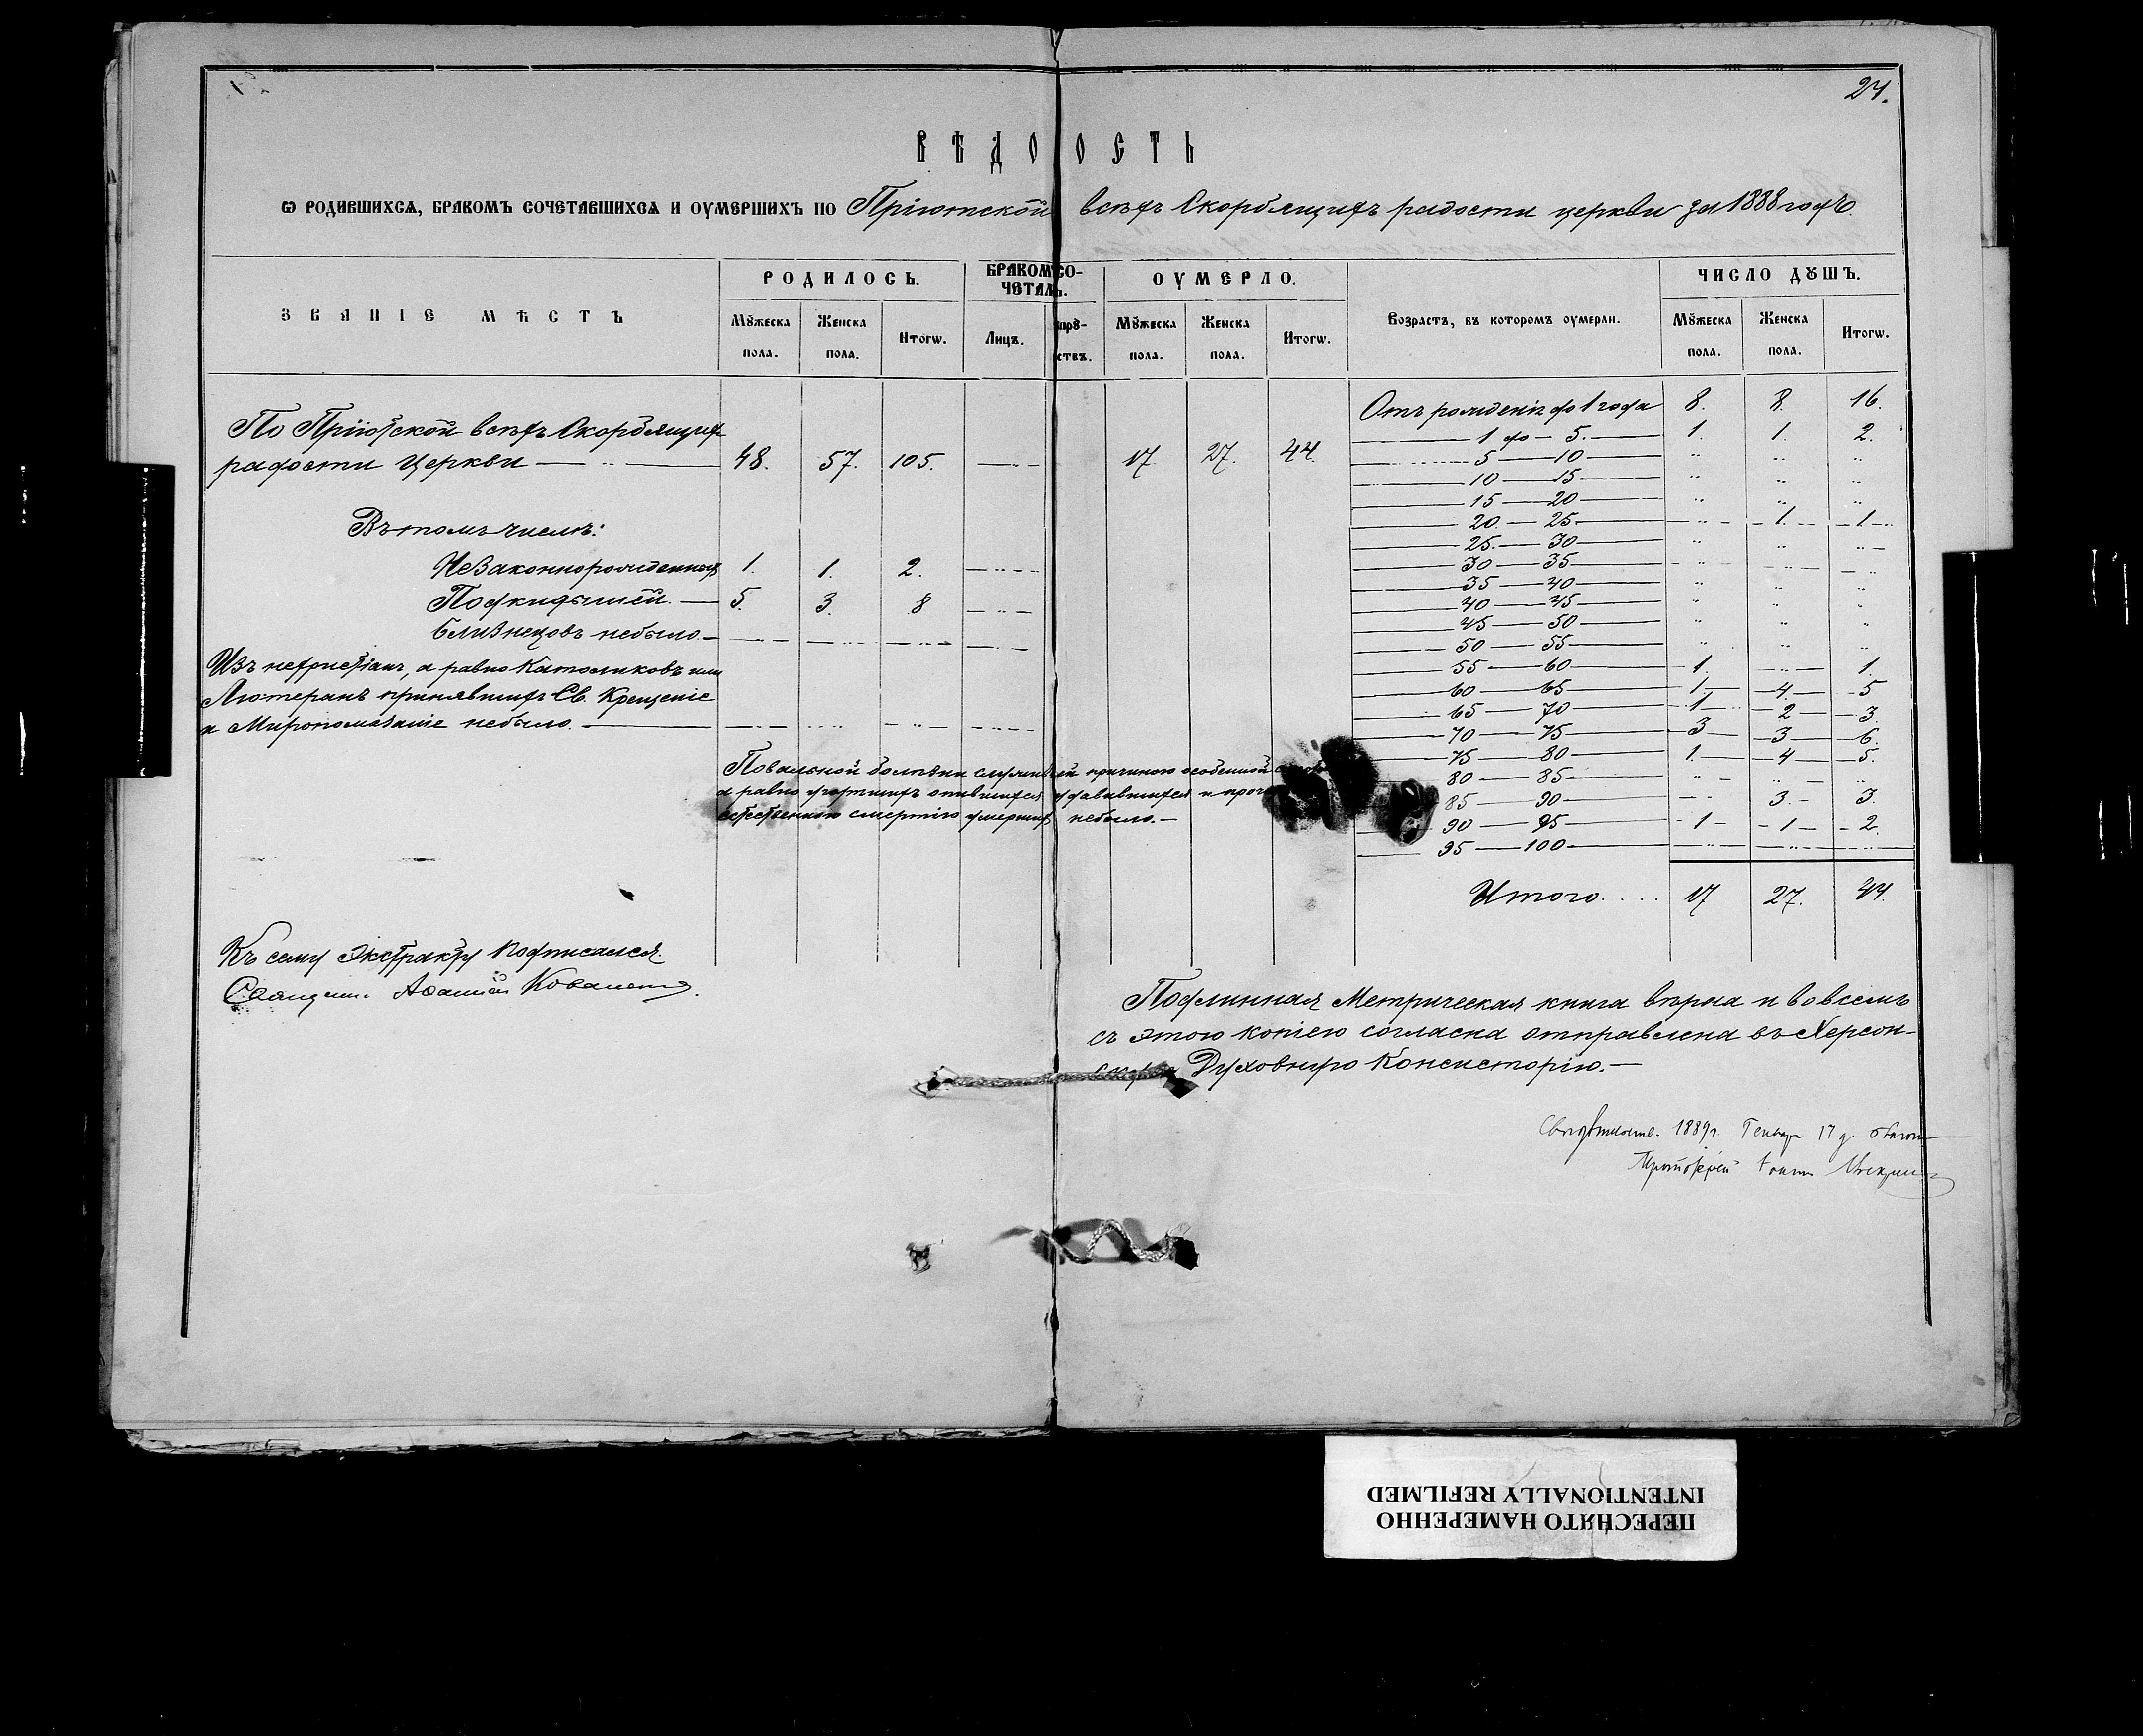 24.
ВѢДОМОСТЬ
Ѡ РОДИВШИХСѦ, БРАКОМЪ СОЧЕТАВШИХСѦ И ОУМЕРШИХЪ ПО Пріютской всѣхъ Скорбящихъ радости церкви за 1888 годъ.
ЗВАНІЕ МѢСТЪ
РОДИЛОСЬ.
БРАКОМЪ СО-
ЧЕТАЛ.
ОУМЕРЛО.
Возрастъ, въ которомъ оумерли.
ЧИСЛО ДꙊШЪ.
Мꙋжеска пола.
Женска пола.
Итогѡ.
Лицъ.
ствъ.
Мꙋжеска пола.
Женска пола.
Итогѡ.
Мꙋжеска пола.
Женска пола.
Итогѡ.
По Пріютской всѣхъ Скорбящихъ
радости Церкви — „ — 48. 57. 105. — „ — 17. 27. 44.
Въ томъ числѣ:
Незаконнорожденныхъ 1. 1. 2. — „ —
Подкидышей. — 5. 3. 8 — „ —
Близнецовъ небыло. — „ — „ — „ — „ —
Изъ нехристіанъ, а равно Католиковъ или
Лютеранъ принявшихъ Св. Крещеніе
и Миропомазаніе небыло. — „ — „ — „ — „ —
Повальной болѣзни служившей причиною особенной
а равно опившихся удавившихся и
смертію умершихъ небыло. —
Отъ рожденія до 1 года 8. 8. 16.
1 до 5. 1. 1. 2.
5 — 10 „ „ „
10 — 15 „ „ „
15 — 20 „ „ „
20. — 25 „ 1. 1
25. — 30 „ „ „
30 — 35 „ „ „
35 — 40 „ „ „
40 — 45 „ „ „
45 — 50 „ „ „
50 — 55 „ „ „
55 — 60 1. „ 1.
60 — 65 1. 4. 5
65 — 70 1 2 3.
70 — 75 3 3 6.
75 — 80 1. 4 5.
80 — 85 „ „ „
85 — 90 „ 3. 3.
90 — 95 1 1 2.
95 — 100 „ „ „
Итого. . . . 17 27. 44.
Къ сему экстракту подписался.
Священ. Аѳанасій
Подлинная Метрическая книга вѣрна и во всемъ
съ этою копіею согласна отправлена въ Херсон-
скую Духовную Консисторію. —
1889 г. Генвар 17 д.
Протоіерей
ПЕРЕСНЯТО НАМЕРЕННО
INTENTIONALLY REFILMED